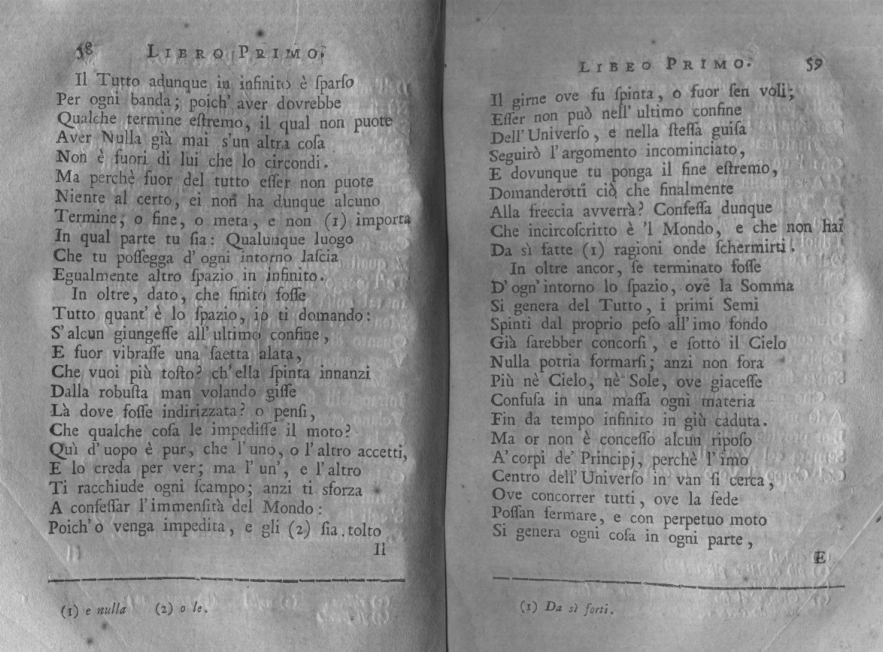 58 LIBRO PRIMO.
Il Tutto adunque in infinito è ſparſo
Per ogni banda; poich' aver dovrebbe
Qualche termine eſtremo, il qual non puote
Aver Nulla già mai s'un altra coſa
Non è fuori di lui che lo circondi.
Ma perchè fuor del tutto eſſer non puote
Niente al certo, ei non ha dunque alcuno
Termine, o fine, o meta, e non (1) importa
In qual parte tu ſia: Qualunque luogo
Che tu poſſegga d'ogni intorno laſcia
Egualmente altro ſpazio in infinito.
In oltre, dato, che finito foſſe
Tutto quant' è lo ſpazio, io ti domando:
S'alcun giungeſſe all'ultimo confine,
E fuor vibraſſe una ſaetta alata,
Che vuoi più toſto? ch'ella ſpinta innanzi
Dalla robuſta man volando giſſe
Là dove foſſe indirizzata? o penſi,
Che qualche coſa le impediſſe il moto?
Quì d'uopo è pur, che l'uno, o l'altro accetti,
E lo creda per ver; ma l'un', e l'altro
Ti racchiude ogni ſcampo; anzi ti sforza
A confeſſar l'immenſità del Mondo:
Poich' o venga impedita, e gli (2) ſia tolto
Il
(1) e nulla (2) o le.
LIBEO PRIMO. 59
Il girne ove fu ſpinta, o fuor ſen voli;
Eſſer non può nell' ultimo confine
Dell'Univerſo, e nella ſteſſa guiſa
Seguirò l'argomento incominciato,
E dovunque tu ponga il fine eſtremo,
Domanderotti ciò che finalmente
Alla freccia avverrà? Confeſſa dunque
Che incircoſcritto è 'l Mondo, e che non hai
Da sì fatte (1) ragioni onde ſchermirti.
In oltre ancor, ſe terminato foſſe
D'ogn'intorno lo ſpazio, ove la Somma
Si genera del Tutto, i primi Semi
Spinti dal proprio peſo all'imo fondo
Già ſarebber concorſi, e ſotto il Cielo
Nulla potria formarſi; anzi non fora
Più nè Cielo, nè Sole, ove giaceſſe
Confuſa in una maſſa ogni materia
Fin da tempo infinito in giù caduta.
Ma or non è conceſſo alcun ripoſo
A' corpi de' Principj, perchè l'imo
Centro dell'Univerſo in van ſi cerca,
Ove concorrer tutti, ove la ſede
Poſſan fermare, e con perpetuo moto
Si genera ogni coſa in ogni parte,
E
(1) Da sì forti.